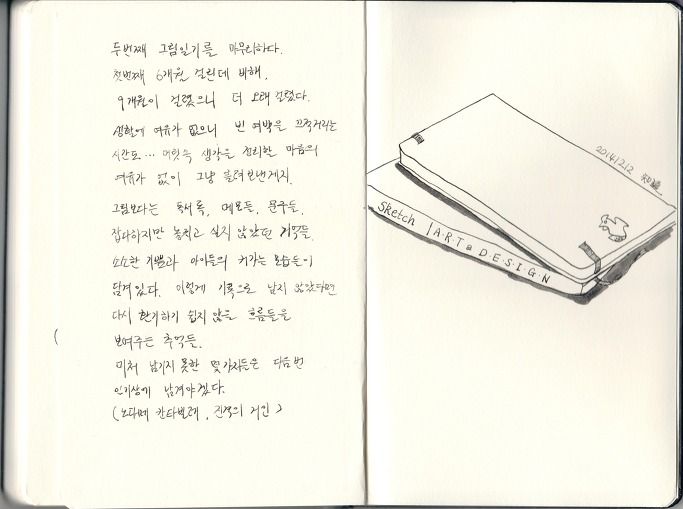 두번째 그림일기를 마무리하다.
첫번째 6개월 걸린데 비해,
9개월이 걸렸으니 더 오래 걸렸다.
생활에 여유가 없으니 빈 여백을 끄적거리는
시간도… 머릿속 생각을 정리할 마음의
여유가 없이 그냥 흘려보낸게지.
그림보다는 독서록, 메모들, 문구들.
잡다하지만 놓치고 싶지 않았던 기억들.
소소한 기쁨과 아이들의 커가는 모습들이
담겨있다. 이렇게 기록으로 남지 않았다면
다시 환기하기 쉽지 않을 흐름들을
보여주는 추억들.
미처 남기지 못한 몇가지들은 다음번
인기상에 남겨야겠다.
(노다메 칸타빌레, 진격의 거인)
20141212
Sketch | ART & DESIGN